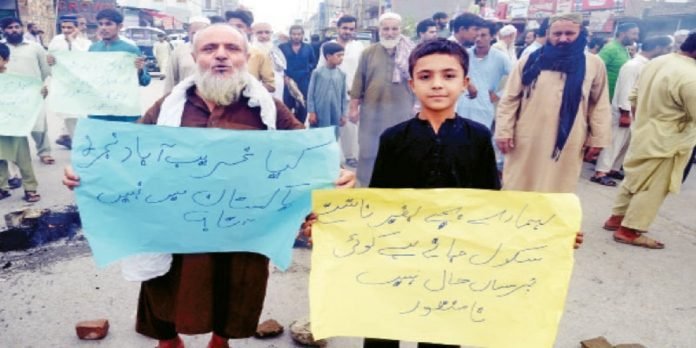 کیا غریب آباد نمبر 2
پاکستان میں نہیں
آتا؟
ہمارے بچے بغیر ناشتے
سکول جاتے ہے کوئی
پرساں حال نہیں
نا منظور